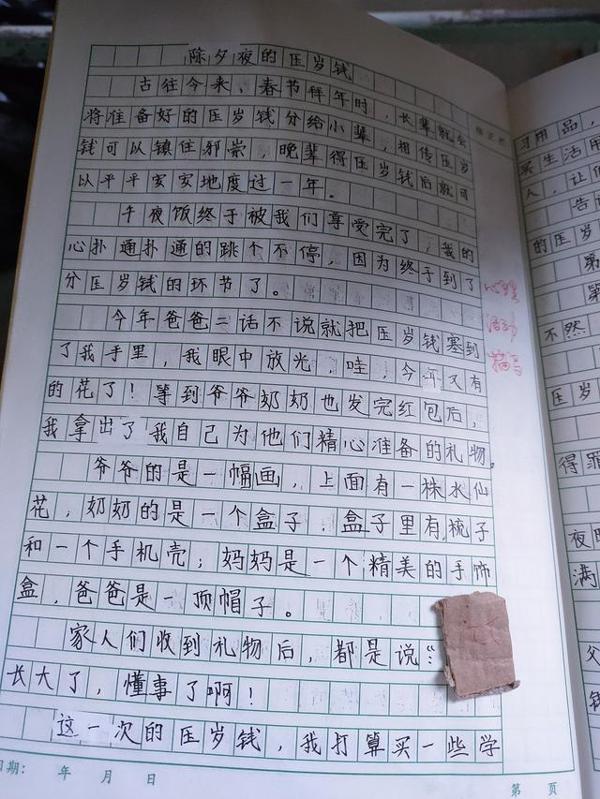 陈夕夜的压岁钱
古往今来，春节拜年时，长辈就会
将准备好的压岁钱分给小辈，相传压岁
钱可以镇住邪祟，晚辈得压岁钱后就可
以平平安安地度过一年。
午夜饭终于被我们享受完了，我的
心扑通扑通的跳个不停，因为终于到了
分压岁钱的环节了。
今年爸爸二话不说就把压岁钱塞到
了我手里，我眼中放光，哇，今年又有
的花了！等到爷爷奶奶也发完红包后，
我拿出了我自己为他们精心准备的礼物，
爷爷的是一幅画，上面有一株水仙
花，奶奶的是一个盒子，盒子里有梳子
和一个手机壳；妈妈是一个精美的手饰
盒，爸爸是一顶帽子。
家人们收到礼物后，都是说“
长大了，懂事了啊！
这一次的压岁钱，我打算买一些学
日期： 年 月 日
第 页
心理
活动
描写
习用品，
买生活用
人，让他
告
的压岁
第
第
不然
压岁
得罪
夜
满
父
的